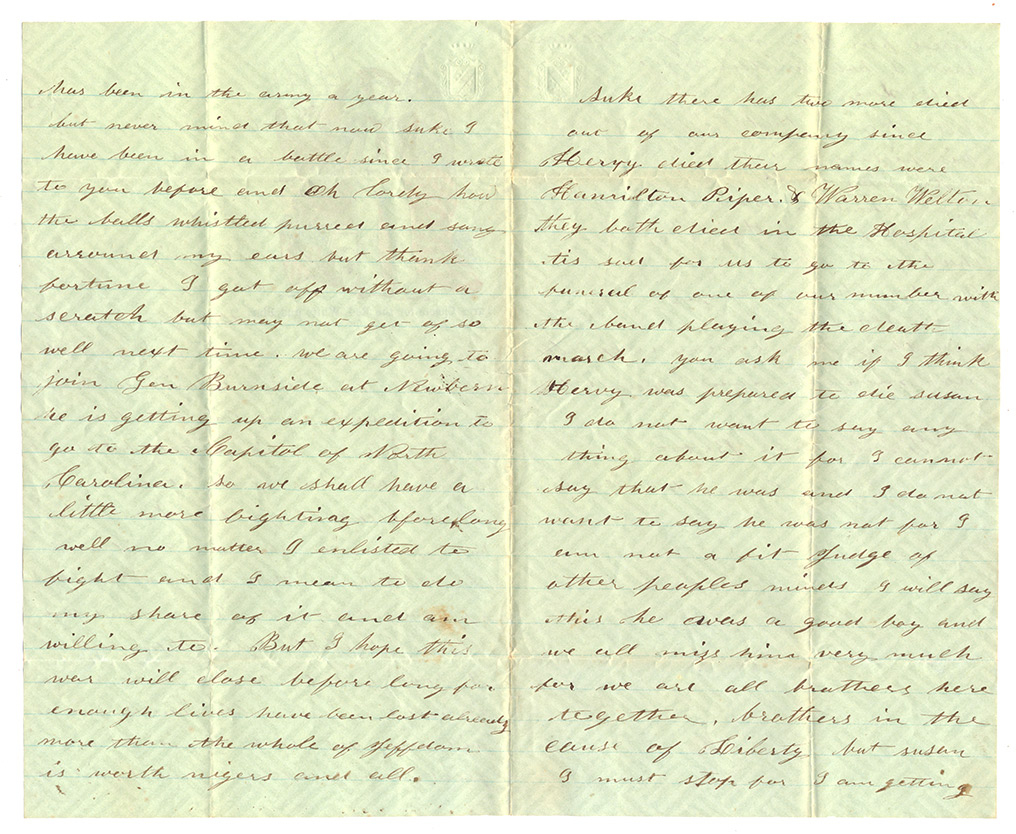 has been in the army a year.
but never mind that now suke I
have been in a battle since I wrote
to you before and Oh lordy how
the balls whistled purred and sang
arround my ears but thank
fortune I got off without a
scratch but may not get of so
well next time. we are going to
join Gen Burnside at Newbern
he is getting up an expedition to
go to the Capitol of North
Carolina. so we shall have a
little more fighting before long
well no matter I enlisted to
fight and I mean to do
my share of it and am
willing to. But I hope this
war will close before long for
enough lives have been lost already
more than the whole of Jeffdom
is worth nigers and all.
Suke there has two more died
out of our company since
Hervy died their names were
Hamilton Piper. & Warren Welton
they both died in the Hospital
tis sad for us to go to the
funeral of one of our number with
the band playing the death
march. you ask me if I think
Hervy was prepared to die susan
I do not want to say any
thing about it for I cannot
say that he was and I do not
want to say he was not for I
am not a fit Judge of
other peoples minds I will say
this he was a good boy and
we all miss him very much
for we are all brothers here
together, brothers in the
cause of Liberty but susan
I must stop for I am getting